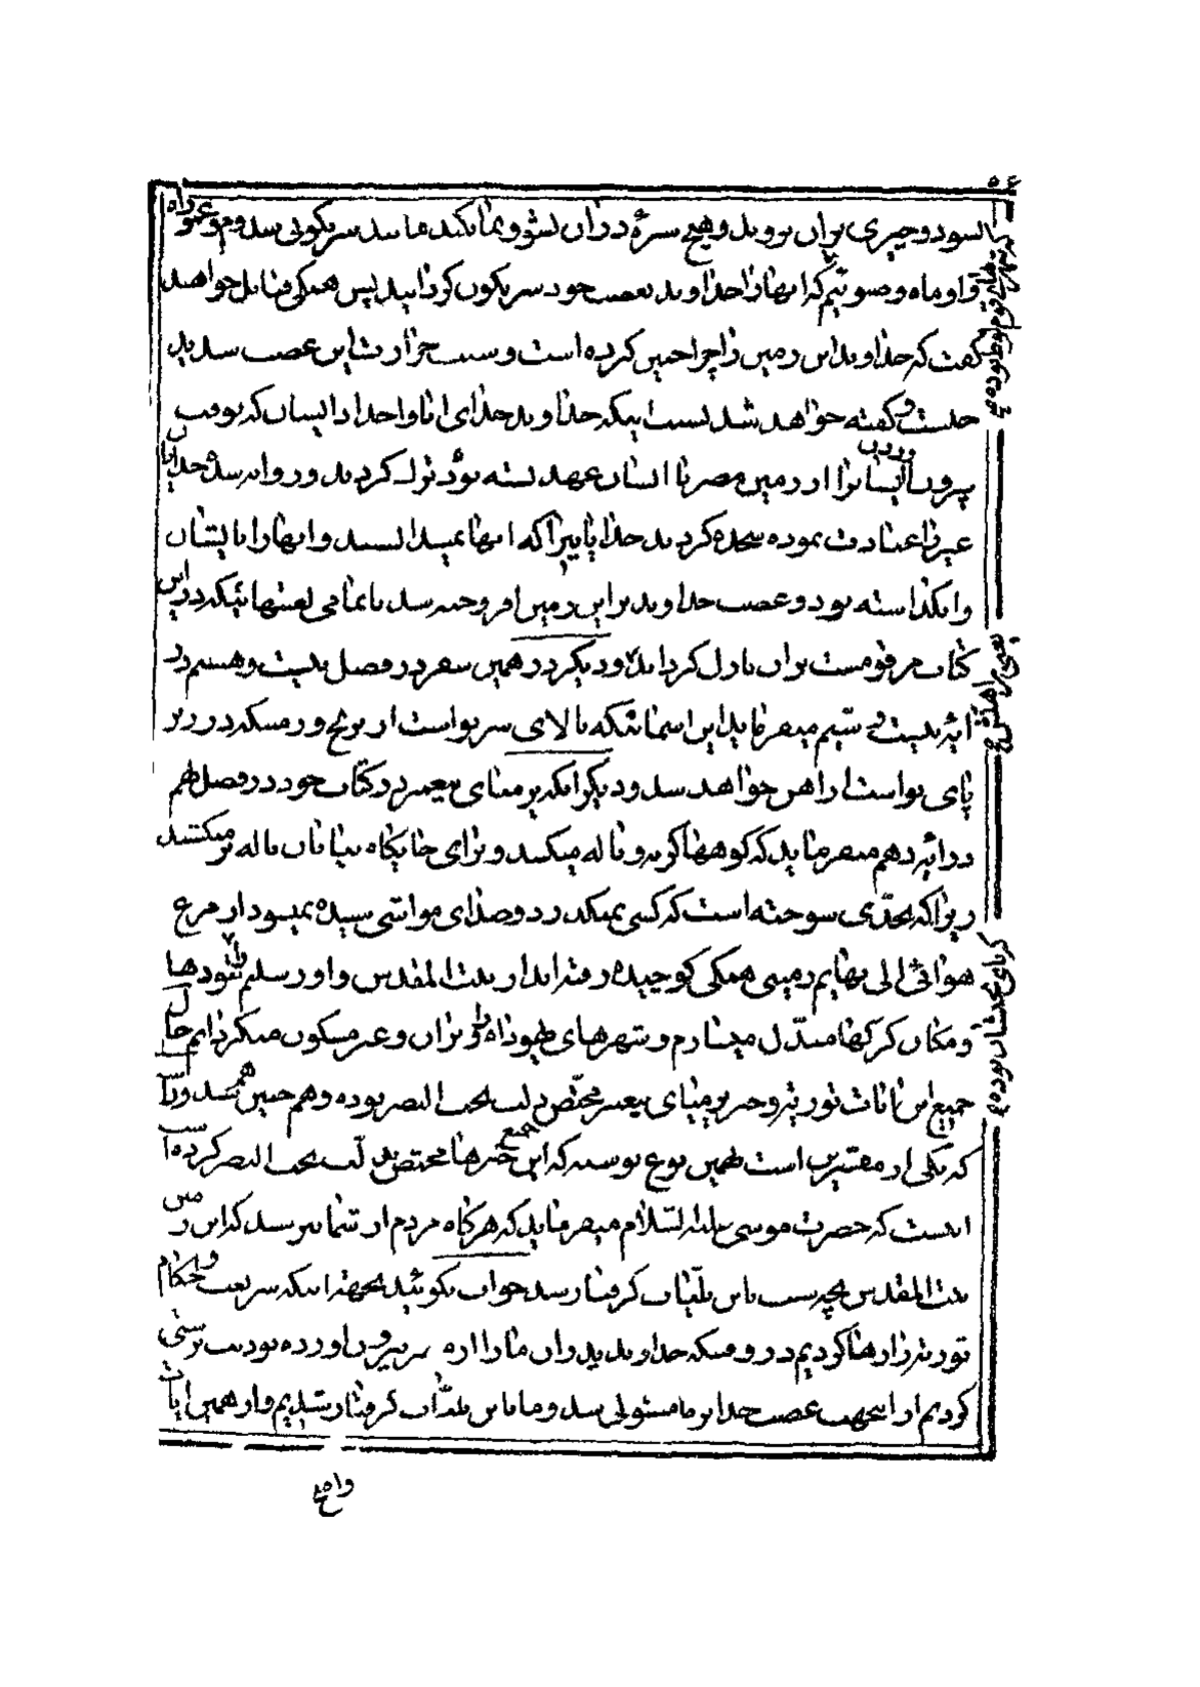 نشود و چیزی بران نروید و هیچ سبزۀ دران نشو و نما نکند مانند سرنکونی سدوم و عموراه
و ادوماه و صبوئیم که اینها را خداوند بغضب خود سرنکون کردانید پس همکی قبایل خواهند
کفت که خداوند این زمین را چرا چنین کرده است و سبب حرارت این غضب شدید
چیست و کفته خواهد شد بسبب اینکه خداوند خدای ابا و اجداد ایشان که بوقت
بیرون اوردن ایشانرا از زمین مصر با ایشان عهد بسته بود ترک کردند و روانه شده خدایان
غیر را عبادت نموده سجده کردند خدایانیرا که اینها نمیدانستند و اینها را بایشان
وانکذاشته بود و غضب خداوند براین زمین افروخته شد تا تمامی لعنتهائیکه در این
کتاب مرقومست بران نازل کرداند و دیکر در همین سفر در فصل بیست و هشتم در
ایه بیست و سیم میفرماید این اسمانیکه بالای سر تو است از برنج و زمینیکه در زیر
پای تو است از اهن خواهد شد و دیکر اینکه یرمیای پیغمبر در کتاب خود در فصل نهم
در ایه دهم میفرماید که کوهها کریه و ناله میکنند و برای جایکاه بیابان ناله بر میکشند
زیرا که بحدی سوخته است که کسی نمیکذرد و صدای مواشی شنیده نمیشود از مرغ
هوائی الی بهایم زمینی همکی کوچیده رفته اند از بیت المقدس و اورسلیم را بتودها
و مکان کرکها مبدّل میسازم و شهرهای یهوداه را ویران و غیر مسکون میکردانم حال
جمیع این ایات توریه و خبر یرمیای پیغمبر مختص بایام بخت النصر بوده و همچنین
که یکی از مفسرین است همین نوع نوشته که این جمیع خبرها مختص بایام بخت النصر کرده است
اینست که حضرت موسی علیه السّلام میفرماید که هرکاه مردم از شما بپرسند که این زمین
بیت المقدس بچه سبب باین بلیّات کرفتار شد جواب بکوئید بجهة اینکه شریعت و احکام
توریة را رها کردیم در وقتیکه خداوند پدران ما را از مصر بیرون اورده بود بت پرستی
کردیم از این جهت غضب خدا بر ما مستولی شد و ما باین بلیّات کرفتار شدیم و از همین ایات
واضح